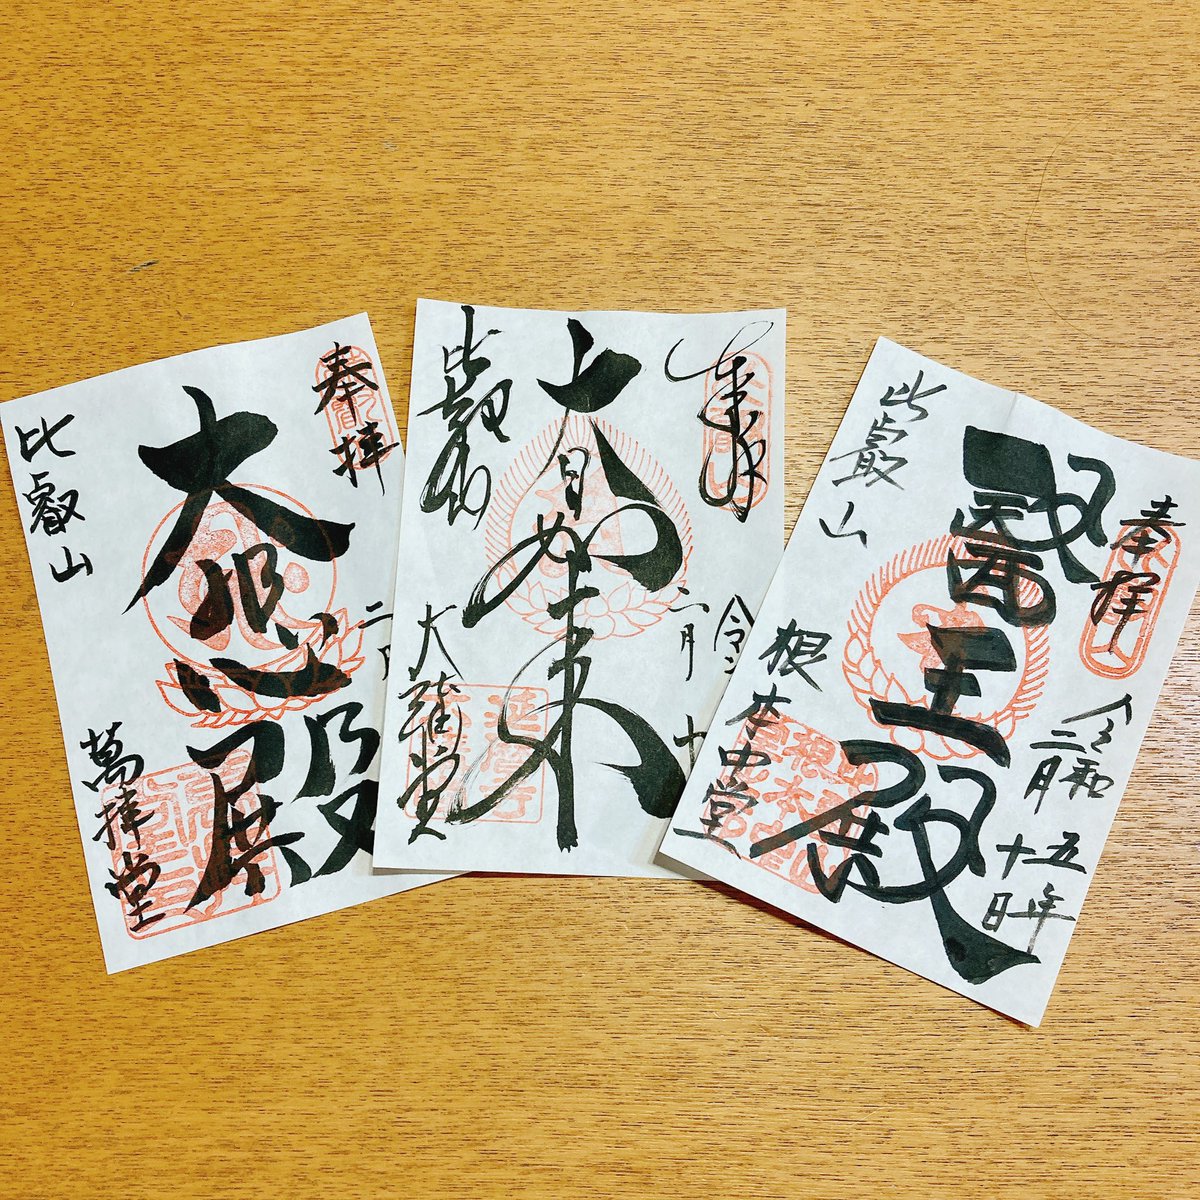 奉拝
二月
大恩殿
比叡山
萬拝堂
奉拝
二月十
大日如来
比叡山
大講堂
延暦寺
奉拝
令和五年
二月十日
醫王殿
比叡山
根本中堂